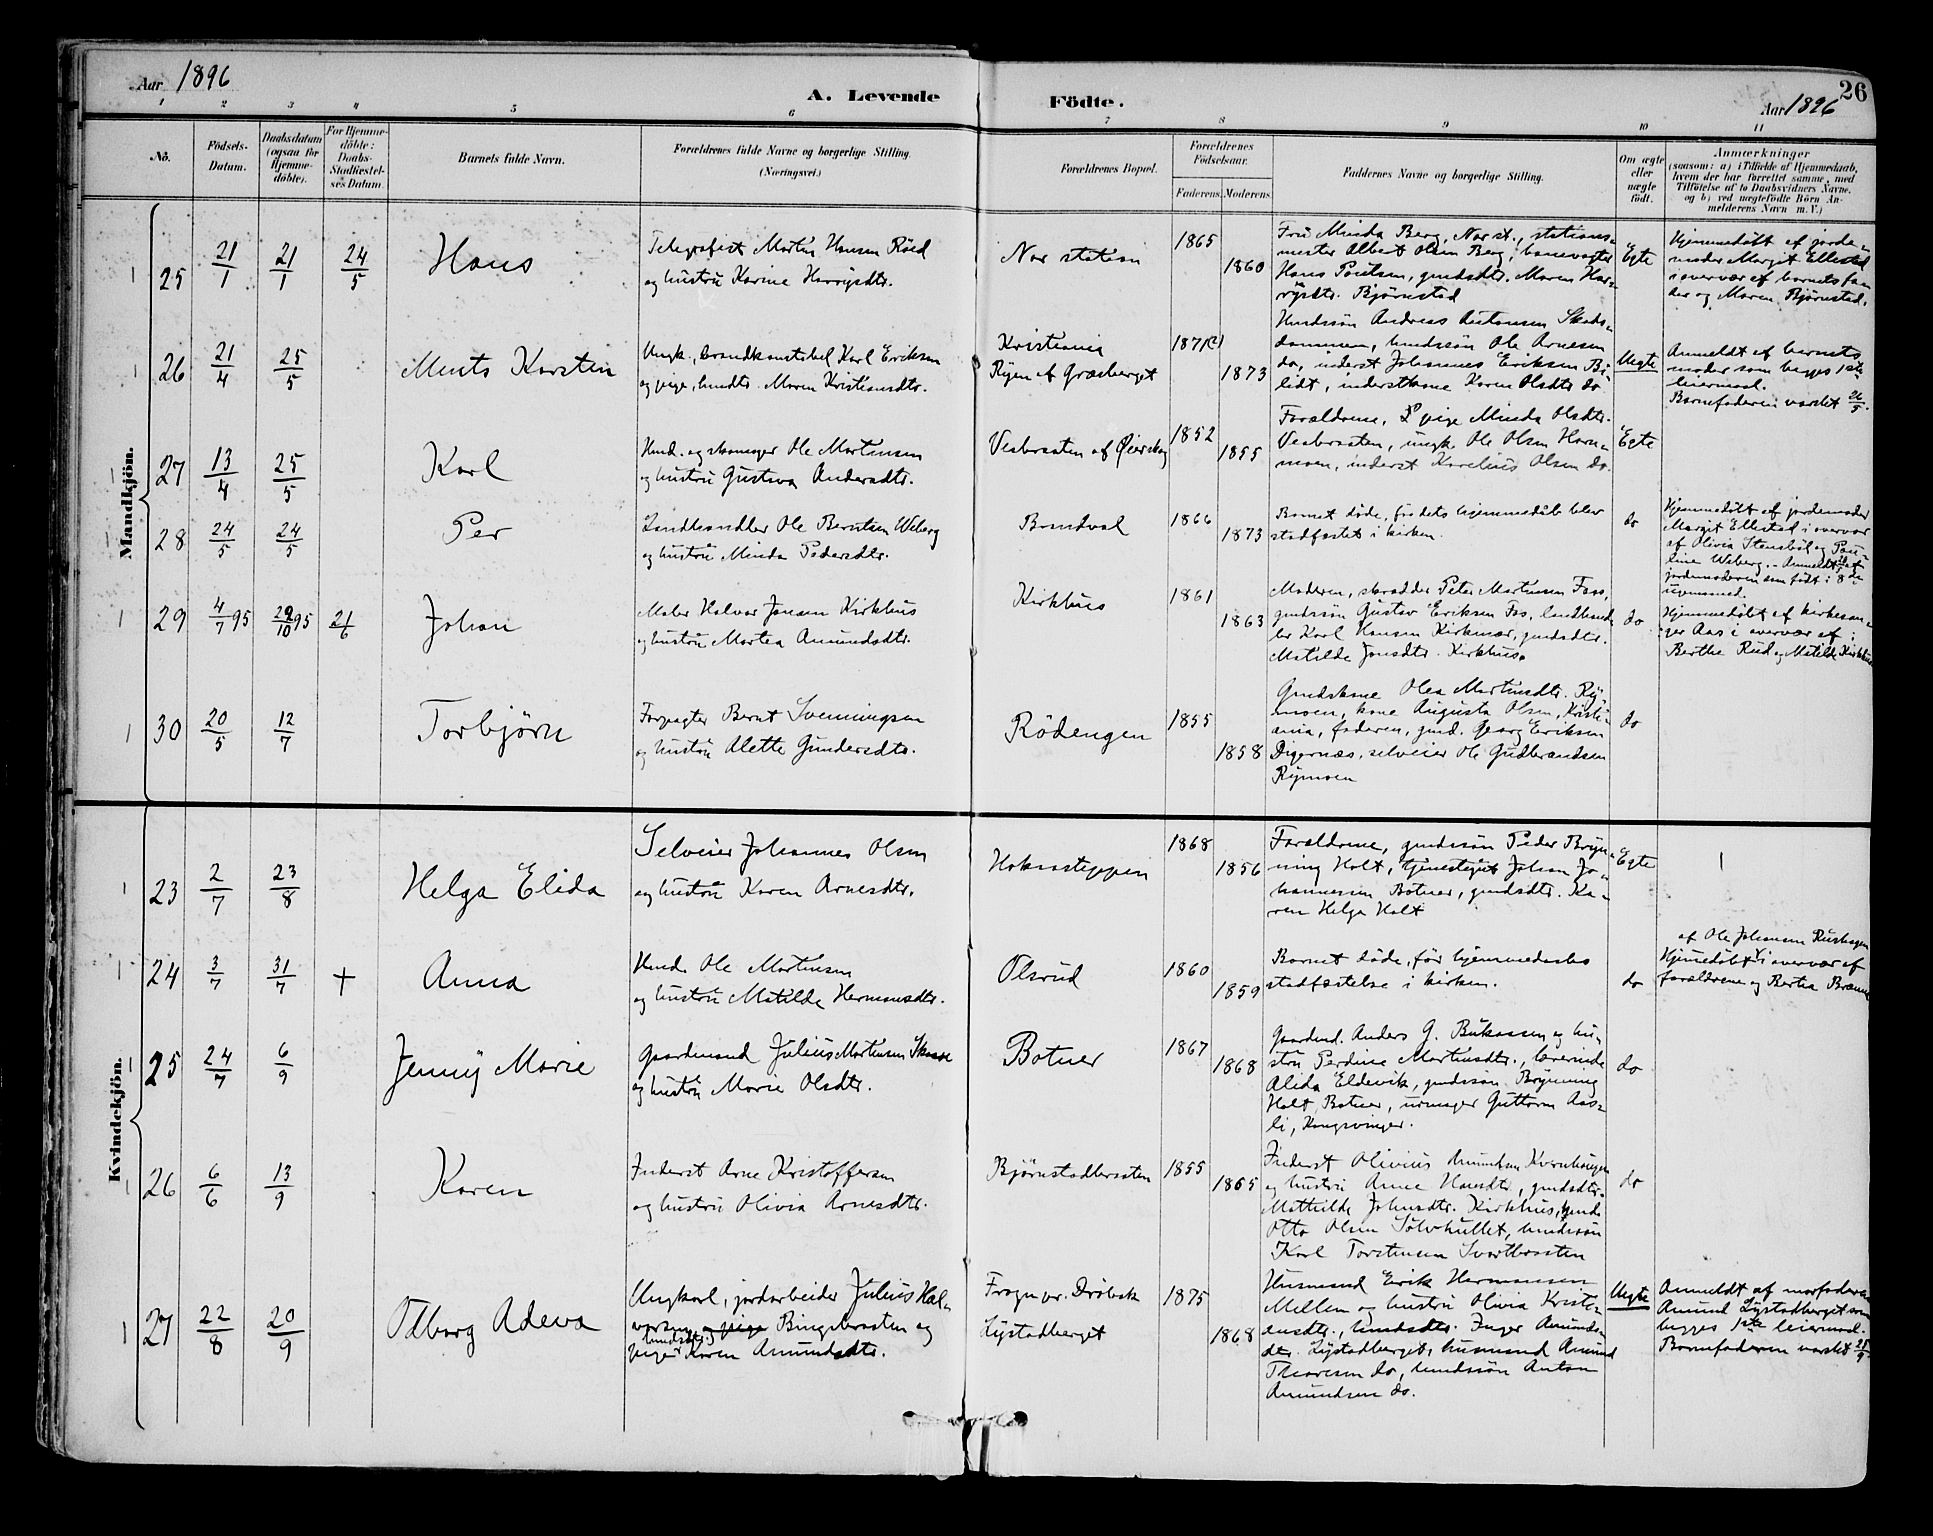 Aar 1896
A. Levende
Födte.
Aar 1896
26
1 2 3 4 5 6 7 8 9 10 11
No.
Födsels-
Datum.
Daabsdatum
(ogsaa för
Hjemme-
döbte).
For Hjemme-
döbte:
Daabs-
Stadfæstel-
ses Datum.
Barnets fulde Navn.
Forældrenes fulde Navne og borgerlige Stilling.
(Næringsvei.)
Forældrenes Bopæl.
Forældrenes
Födselsaar.
Faderens. Moderens.
Faddernes Navne og borgerlige Stilling.
Om ægte
eller
uægte
födt.
Anmærkninger
(saasom: a) i Tilfælde af Hjemmedaab,
hvem der har forrettet samme, med
Tilföielse af to Daabsvidners Navne.
og b) ved uægtefödte Börn An-
melderens Navn m. V.)
Mandkjön.
25
21/1
21/1
24/5
Hans
Telegrafist Martin Hansen Röed
og hustru Karine Harrysdtr.
Nor station
1865
1860
Fru Minda Berg, Nor st., stations-
mester Albert Olsen Berg, banevogter
Hans Poulsen, gmdsdtr. Maren Har-
rysdtr. Bjørnstad
Egte
Hjemmedøbt af jorde-
moder Margit Ellestad
i overvær af barnets fa-
der og Maren Bjørnstad.
26
21/4
25/5
Ments Karsten
Ungk., brandkonstabel Karl Eriksen
og pige, hmdtr. Maren Kristiansdtr.
Kristiania
Ryen af Græsberget
1871
1873
Husmdssøn Andreas Antonsen Skods-
dammen, hmdssøn Ole Arnesen
do, inderst Johannes Eriksen
inderstkone Karen Olsdtr do
Uegte
Anmeldt af barnets
moder som begges 1ste
leiermaal.
Barnefaderen varslet 26/5.
27
13/4
25/5
Karl
Hmd. og skomager Ole Martinsen
og hustru Gustava Andersdtr.
Vesbraaten af Øierskog
1852
1855
Forældrene, pige Minda Olsdtr.
Vesbraaten, ungk. Ole Olsen Horn-
moen, inderst Karelius Olsen do.
Egte
28
24/5
24/5
Per
Landhandler Ole Berntsen Weberg
og hustru Minda Pedersdtr.
Brandval
1866
1873
Barnet døde, før dets hjemmedåb blev
stadfæstet i kirken.
do
Hjemmedøbt af jordemoder
Margit Ellestad i overvær
af Olivia Stensbøl og Pau-
line Weberg. - Anmeldt af
jordemoderen som født i 8de
ugensmd.
29
4/7 95
29/10 95
21/6
Johan
Maler Halvor Jonsen Kirkhus
og hustru Martea Amundsdtr.
Kirkhus
1861
1863
Moderen, skrædder Peter Martinsen Foss,
gmdssøn Gustav Eriksen Fos, landhand-
ler Karl Hansen Kirknær, gmdsdtr.
Matilde Jonsdtr. Kirkhus.
do
Hjemmedøbt af kirkesan-
ger Aas i overvær af
Berthe Rud og Matilde Kirkhus
30
20/5
12/7
Torbjørn
Forpagter Bernt Svenningsen
og hustru Alette Gundersdtr.
Rödengen
1855
1858
Gmdskone Olea Martinsdtr. Ry-
moen, kone Augusta Olsen, Kristi-
ania, faderen, gmd. Georg Eriksen
Digernæs, selveier Ole Gudbrandsen
Rymoen
do
Kvindekjön.
23
2/7
23/8
Helga Elida
Selveier Johannes Olsen
og hustru Karen Arnesdtr.
Hokaasteppen
1868
1856
Forældrene, gmdssøn Peder Bryn-
ning Holt, tjenestegut Johan Jo-
hannessen Botner, gmdsdtr. Ka-
ren Helga Holt
Egte
24
3/7
31/7
+
Anna
Hmd. Ole Martinsen
og hustru Matilde Hermansdtr.
Olsrud
1860
1859
Barnet døde, før hjemmedaabs
stadfæstelse i kirken.
do
af Ole Johansen Rushagen
Hjemmedøbt i overvær af
forældrene og Bertea Brænne
25
24/7
6/9
Jenny Marie
Gaardmand Julius Martinsen
og hustru Marie Olsdtr.
Botner
1867
1868
Gaardmd. Anders G. Bukaasen og hu-
stru Perdine Martinsdtr., lærerinde
Alida Eldevik, gmdssøn Brynning
Holt, Botner, urmager Guttorm Aas-
li, Kongsvinger.
do
26
6/6
13/9
Karen
Inderst Arne Kristoffersen
og hustru Olivia Arnesdtr.
Bjørnstadbraaten
1855
1865
Inderst Olivius Amundsen Kvernhaugen
og hustru Anne Hansdtr, gmdsdtr.
Mathilde Johnsdtr. Kirkhus,
Otto Olsen Sølvhullet, hmdssøn
Karl Torstensen Svartbraaten
do
27
22/8
20/9
Olborg Adeva
Ungkarl, jordarbeider Julius Hal-
vorsen og pige Bingsbraaten og
hmdsdtr.
pige Karen Amundsdtr.
Frogn pr. Drøbak
Lystadberget
1875
1868
Husmand Erik Hermansen
Mellem og hustru Olivia Kristi-
ansdtr., hmdsdtr. Inger Amunds-
dtr. Lystadberget, husmand Amund
Thoresen do, hmdssøn Anton
Amundsen do.
Uegte
Anmeldt af morfaderen
Amund Lystadberget som
begges 1ste leiermaal.
Barnefaderen varslet 25/9.